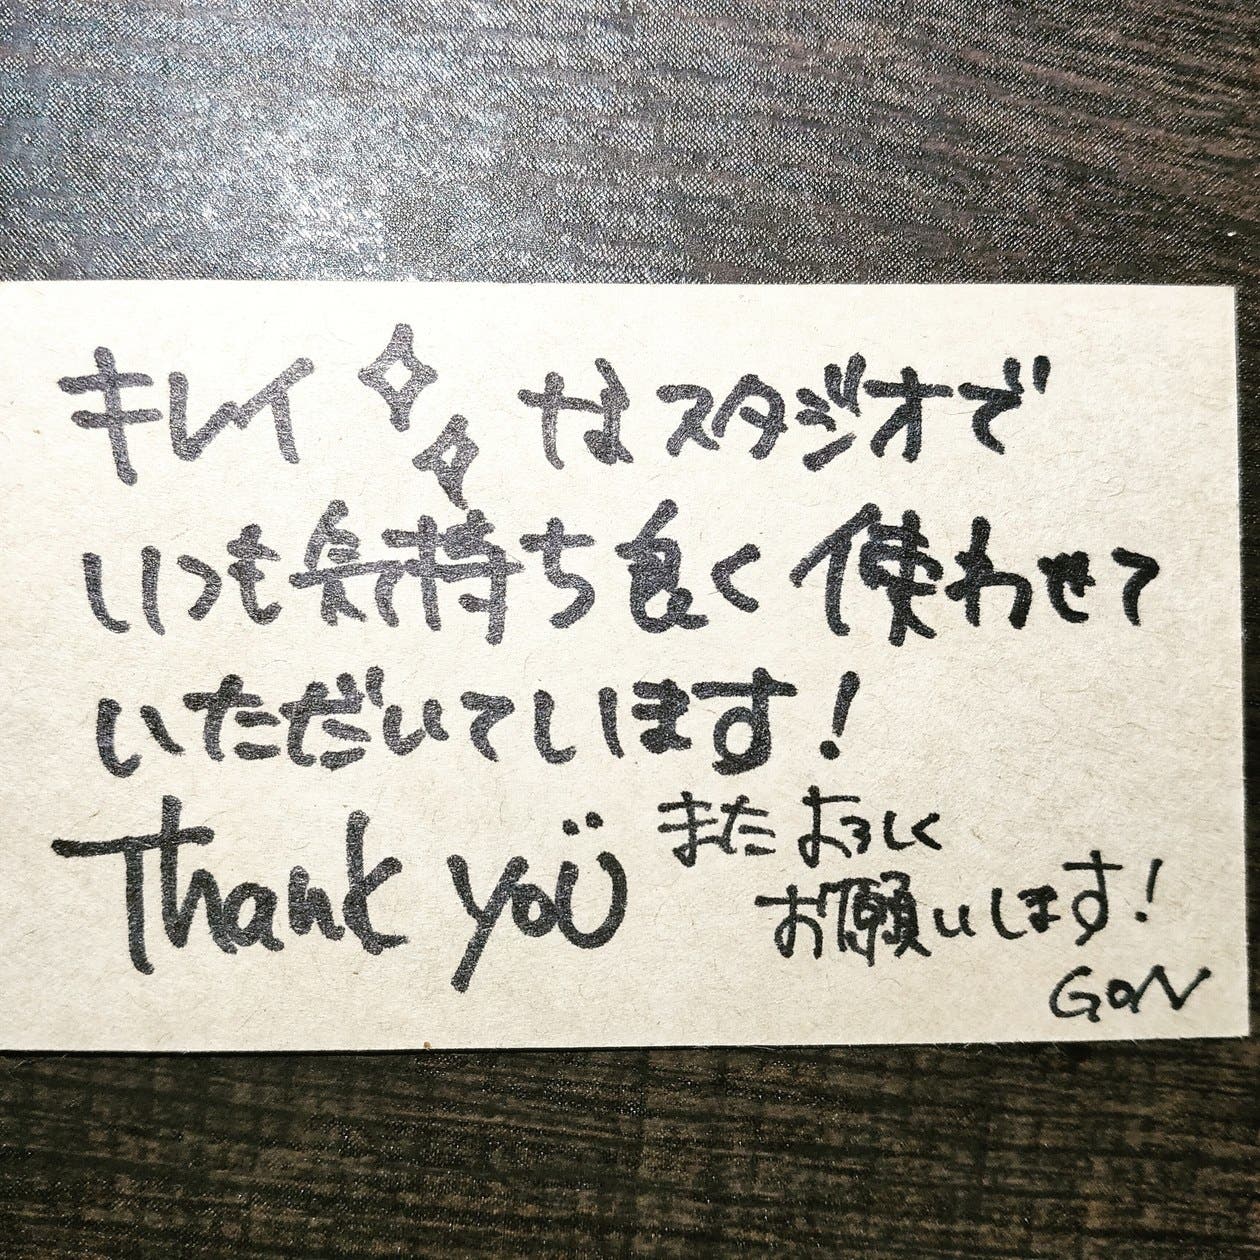 キレイなスタジオで
いつも気持ち良く使わせて
いただいています!
Thank you
またよろしく
お願いします!
GON